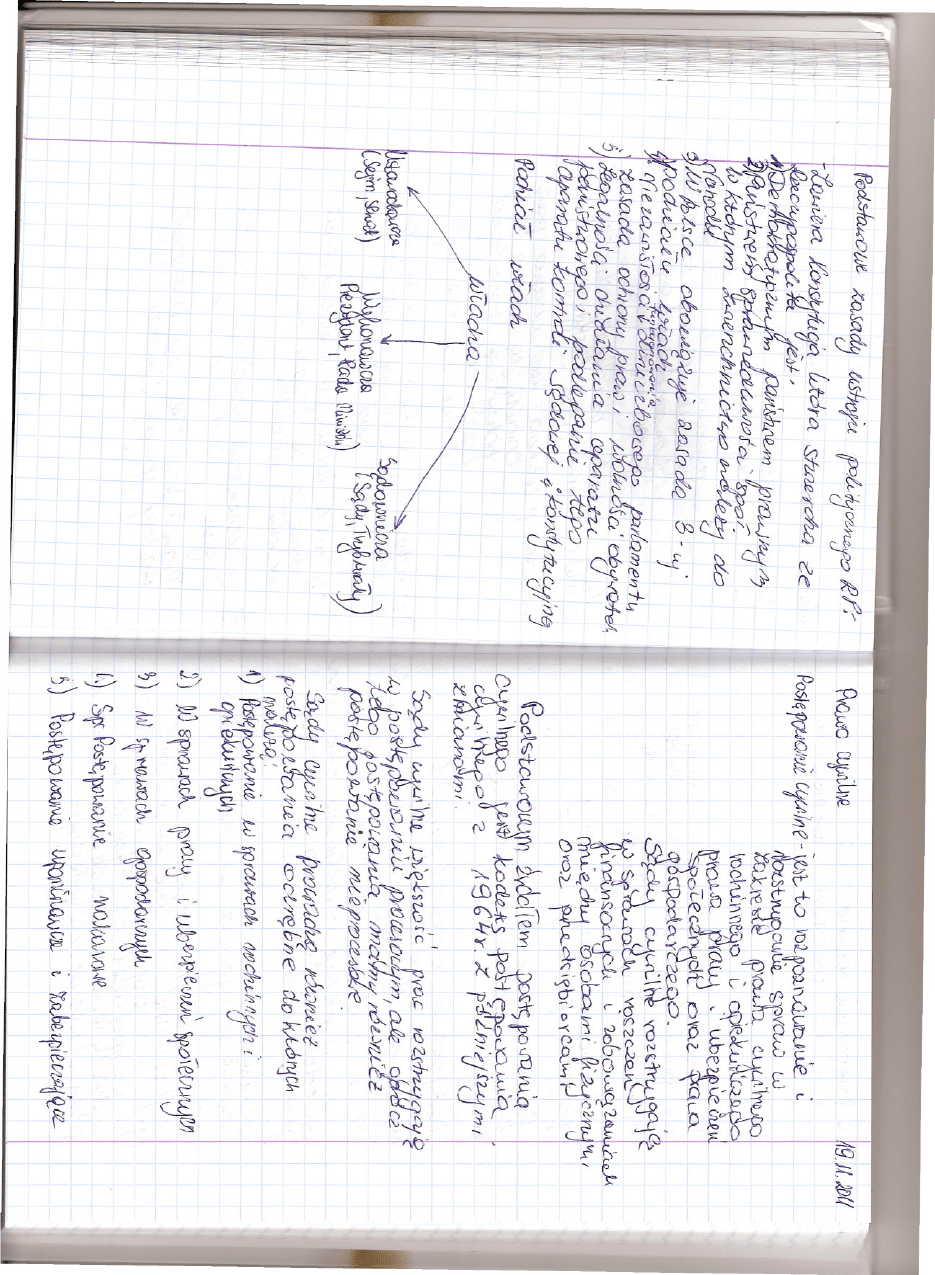 Podstawowe zasady ustroju politycznego RP:
- Zawiera Konstytucja która stwierdza że
Rzeczypospolita jest:
1) Demokratycznym państwem prawnym
2) Państwem sprawiedliwości społ
w którym zwierzchnictwo należy do
Narodu
3) W Polsce obowiązuje zasada 3-uj
podziału władz
4) Niezawisłości parlamentu
zasada ochrony praw i wolności obywateli
5) Legalności działania aparatu
państwowego i podleganie tego
aparatu kontroli sądowej i konstytucyjnej
Podział władz
Władza
Ustawodawcza
(Sejm, Senat)
Wykonawcza
Prezydent, Rada Ministrów)
Sądownicza
(Sądy, Trybunały)
19.11.2011
Prawo cywilne
Postępowanie cywilne - jest to rozpoznawanie i
rozstrzyganie spraw w
zakresie prawa cywilnego
rodzinnego i opiekuńczego
prawa pracy i ubezpieczeń
społecznych oraz prawa
gospodarczego.
Sądy cywilne rozstrzygają
w sprawach roszczeń
finansowych i zobowiązaniach
między osobami fizycznymi
oraz przedsiębiorcami
Podstawowym źródłem postępowania
cywilnego jest kodeks postępowania
cywilnego z 1964r z późniejszymi
zmianami.
Sądy cywilne większość praw rozstrzygają
w postępowaniu procesowym, ale oprócz
tego postępowania mamy również
postępowanie nieprocesowe.
Sądy cywilne prowadzą również
postępowania odrębne do których
należą:
1) Postępowanie w sprawach rodzinnych i
opiekuńczych
2) W sprawach pracy i ubezpieczeń społecznych
3) W sprawach gospodarczych
4) Postępowanie nakazowe
5) Postępowanie upominawcze i zabezpieczające